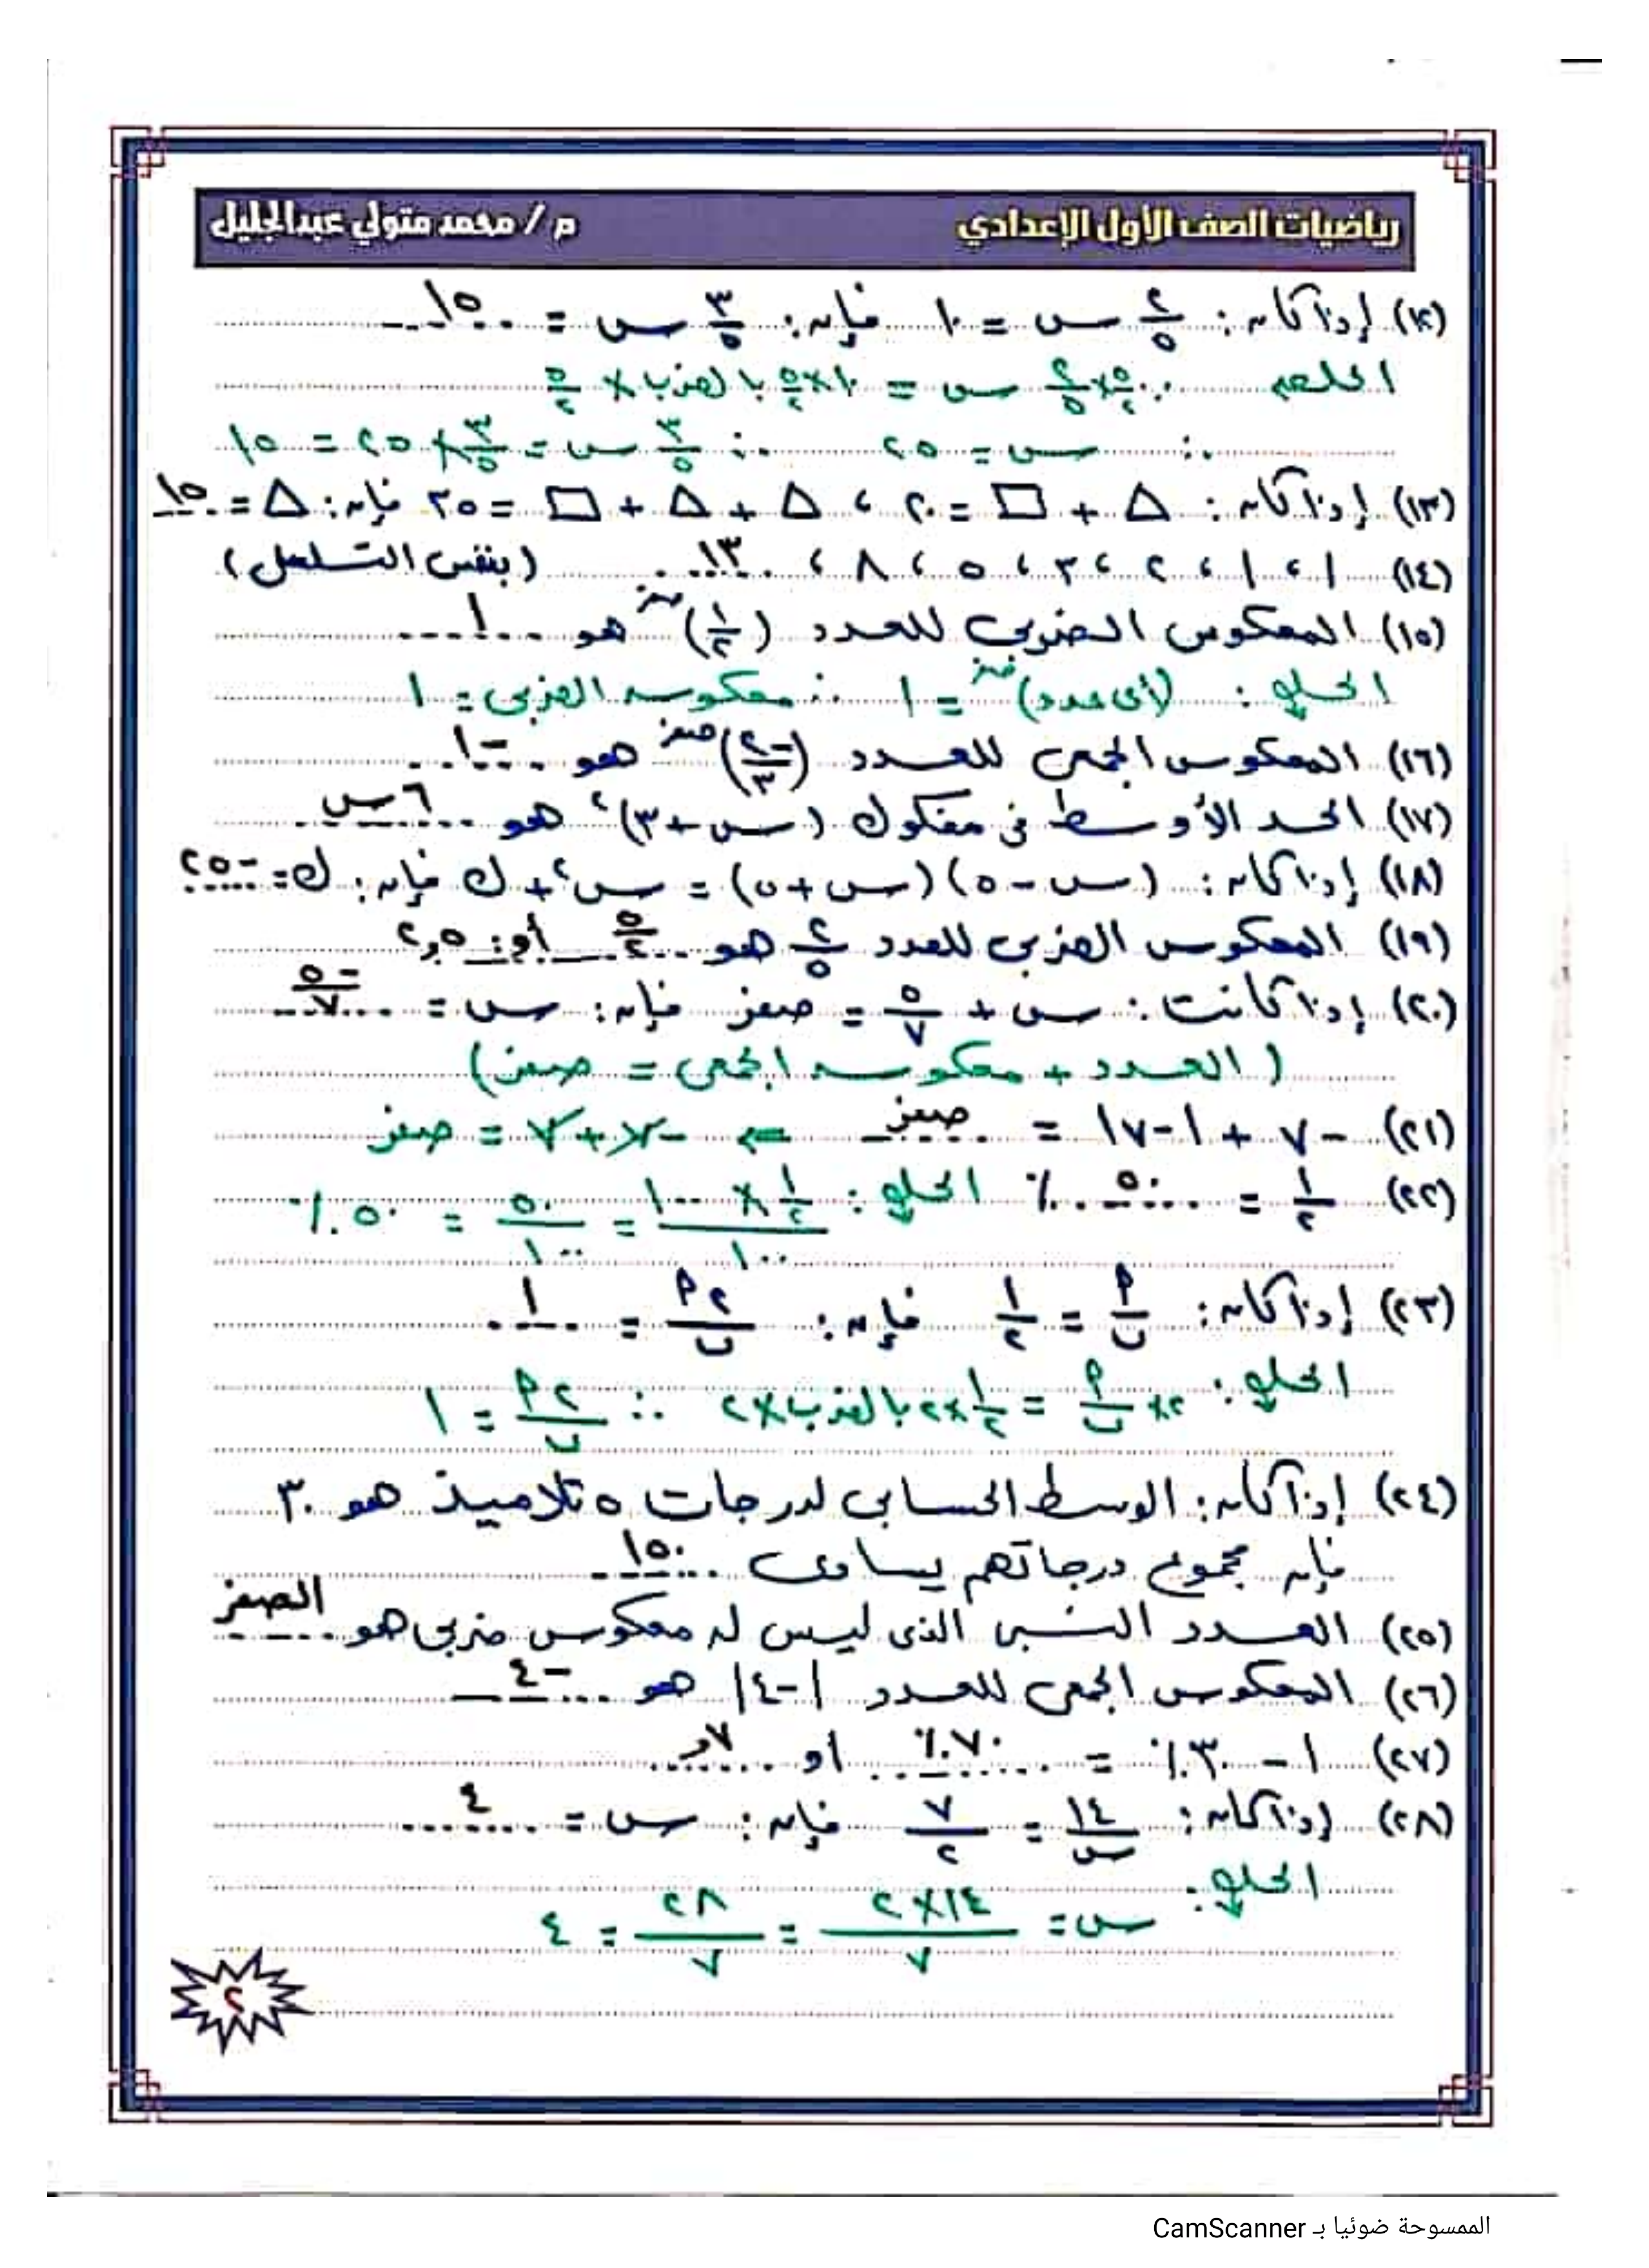 رياضيات الصف الأول الإعدادي م / محمد متولي عبدالجليل
(١٢) إذا كان: ٢/٥ س = ١٠ فإن: ٣/٥ س = ١٥
الحل ∵ ٥/٢ × ٢/٥ س = ١٠ × ٥/٢ بالضرب × ٥/٢
∴ س = ٢٥ ∴ ٣/٥ س = ٣/٥ × ٢٥ = ١٥
(١٣) إذا كان: △ + □ = ٢٠ ، △ + △ + □ = ٣٥ فإن: △ = ١٥
(١٤) ١ ، ١ ، ٢ ، ٣ ، ٥ ، ٨ ، ١٣ (بنفس التسلسل)
(١٥) المعكوس الضربى للعدد (١/٢)^صفر هو ١
الحل: (أى عدد)^صفر = ١ ∴ معكوسه الضربى = ١
(١٦) المعكوس الجمعى للعدد (-٢/٣)^صفر هو -١
(١٧) الحد الأوسط فى مفكوك (س + ٣)² هو ٦س
(١٨) إذا كان: (س - ٥)(س + ٥) = س² + ك فإن: ك = -٢٥
(١٩) المعكوس الضربى للعدد ٢/٥ هو ٥/٢ أو: ٢,٥
(٢٠) إذا كانت: س + ٥/٧ = صفر فإن: س = -٥/٧
(العدد + معكوسه الجمعى = صفر)
(٢١) -٧ + |-٧| = صفر ⇐ -٧ + ٧ = صفر
(٢٢) ١/٢ = ٥٠ ٪ الحل: ١/٢ × ١٠٠ / ١٠٠ = ٥٠/١٠٠ = ٥٠٪
(٢٣) إذا كان: أ/ب = ١/٢ فإن: ٢أ/ب = ١
الحل: ٢× أ/ب = ١/٢ ×٢ بالضرب ×٢ ∴ ٢أ/ب = ١
(٢٤) إذا كان: الوسط الحسابى لدرجات ٥ تلاميذ هو ٣٠
فإن مجموع درجاتهم يساوى ١٥٠
(٢٥) العدد النسبى الذى ليس له معكوس ضربى هو الصفر
(٢٦) المعكوس الجمعى للعدد |-٤| هو -٤
(٢٧) ١ - ٣٠٪ = ٧٠٪ أو ٧,
(٢٨) إذا كان: ١٤/س = ٧/٢ فإن: س = ٤
الحل:
س = ١٤×٢/٧ = ٢٨/٧ = ٤
٢
الممسوحة ضوئيا بـ CamScanner